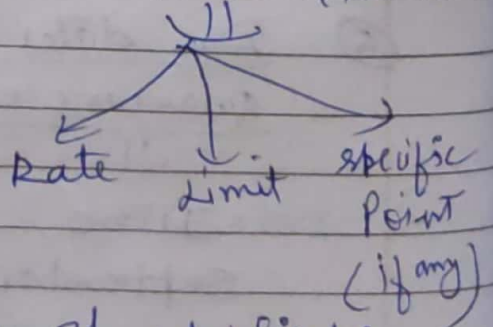 Rate
Limit
specific
Point
(if any)